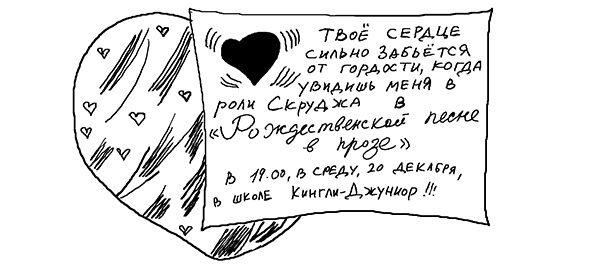 ТВОЁ СЕРДЦЕ
СИЛЬНО ЗАБЬЁТСЯ
ОТ ГОРДОСТИ, КОГДА
УВИДИШЬ МЕНЯ В
РОЛИ СКРУДЖА В
«Рождественской песне
в прозе»
В 19.00, В СРЕДУ, 20 ДЕКАБРЯ,
В ШКОЛЕ КИНГЛИ-ДЖУНИОР!!!